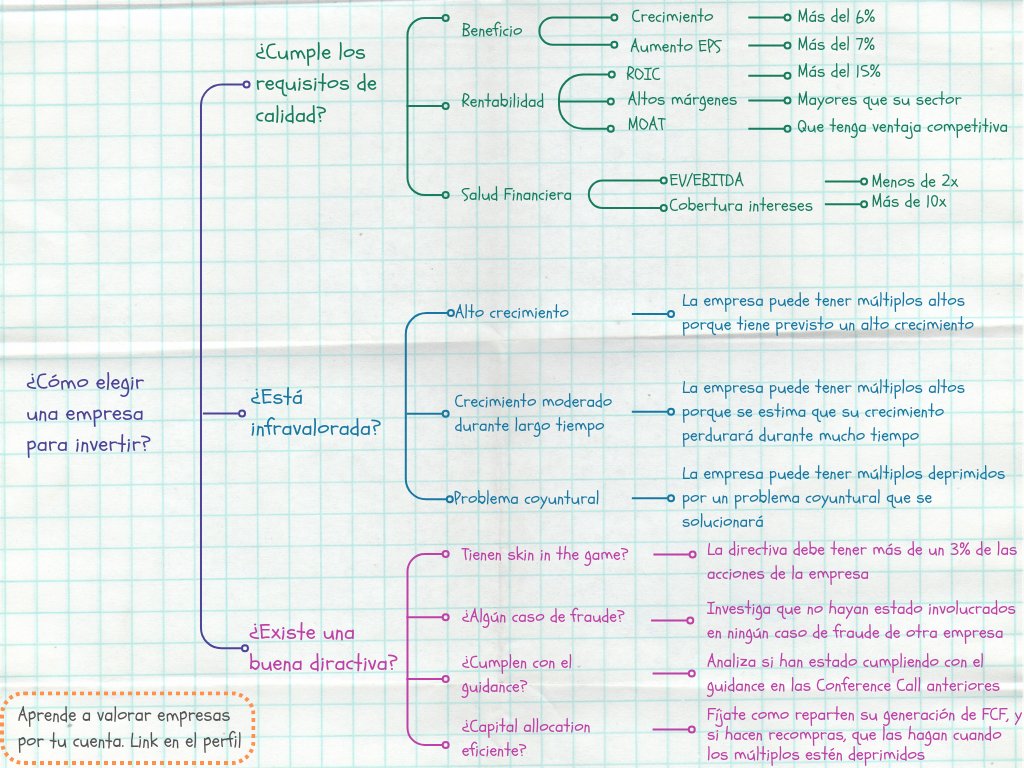 ¿Cómo elegir
una empresa
para invertir?
¿Cumple los
requisitos de
calidad?
Beneficio
Crecimiento
Más del 6%
Aumento EPS
Más del 7%
Rentabilidad
ROIC
Más del 15%
Altos márgenes
Mayores que su sector
MOAT
Que tenga ventaja competitiva
Salud Financiera
EV/EBITDA
Menos de 2x
Cobertura intereses
Más de 10x
¿Está
infravalorada?
Alto crecimiento
La empresa puede tener múltiplos altos
porque tiene previsto un alto crecimiento
Crecimiento moderado
durante largo tiempo
La empresa puede tener múltiplos altos
porque se estima que su crecimiento
perdurará durante mucho tiempo
Problema coyuntural
La empresa puede tener múltiplos deprimidos
por un problema coyuntural que se
solucionará
¿Existe una
buena diractiva?
Tienen skin in the game?
La directiva debe tener más de un 3% de las
acciones de la empresa
¿Algún caso de fraude?
Investiga que no hayan estado involucrados
en ningún caso de fraude de otra empresa
¿Cumplen con el
guidance?
Analiza si han estado cumpliendo con el
guidance en las Conference Call anteriores
¿Capital allocation
eficiente?
Fíjate como reparten su generación de FCF, y
si hacen recompras, que las hagan cuando
los múltiplos estén deprimidos
Aprende a valorar empresas
por tu cuenta. Link en el perfil